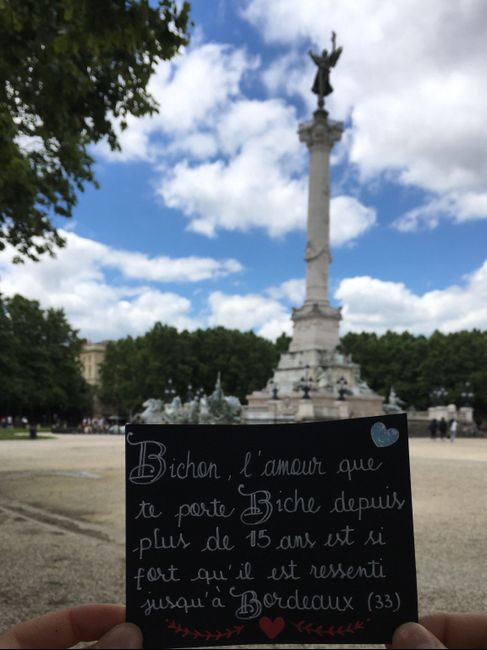 Bichon, l'amour que
te porte Biche depuis
plus de 15 ans est si
fort qu'il est ressenti
jusqu'à Bordeaux (33)